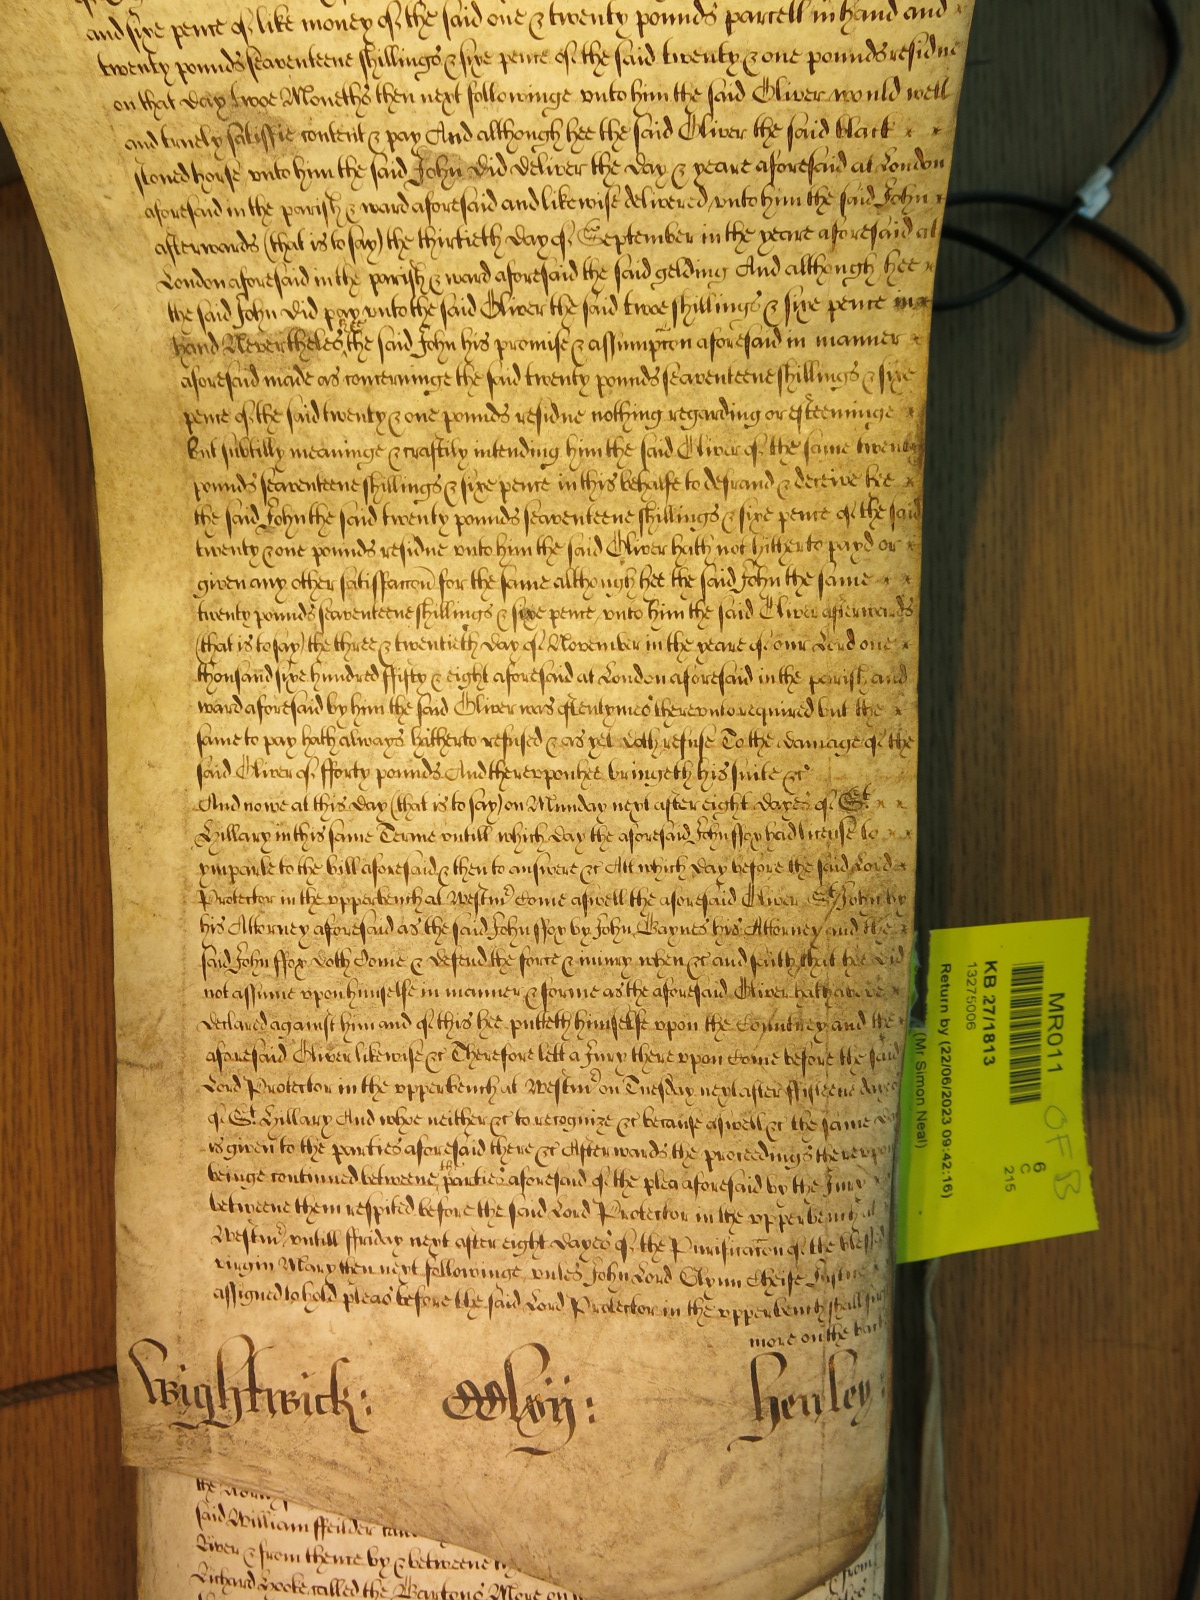 and sixe pence of like money of the said one & twenty pounds parcell in hand and
twenty pounds seaventeene shillings & sixe pence of the said twenty & one pounds residue
on that day twoe Moneths then next followinge unto him the said Oliver would well
and truely satisfie content & pay And although hee the said Oliver the said black
stoned horse unto him the said John did deliver the day & yeare aforesaid at London
aforesaid in the parish & ward aforesaid and likewise delivered unto him the said John
afterwards (that is to say) the thirtieth day of September in the yeare aforesaid at
London aforesaid in the parish & ward aforesaid the said gelding And although hee
the said John did pay unto the said Oliver the said twoe shillings & sixe pence in
hand Nevertheles the said John his promise & assumpcon aforesaid in manner
aforesaid made as concerninge the said twenty pounds seaventeene shillings & sixe
pence of the said twenty & one pounds residue nothing regarding or esteeminge
but subtilly meaninge & craftily intending him the said Oliver of the same twenty
pounds seaventeene shillings & sixe pence in this behalfe to defraud & deceive hee
the said John the said twenty pounds seaventeene shillings & sixe pence of the said
twenty & one pounds residue unto him the said Oliver hath not hitherto payd or
given any other satisfaccon for the same although hee the said John the same
twenty pounds seaventeene shillings & sixe pence unto him the said Oliver afterwards
(that is to say) the three & twentieth day of November in the yeare of our Lord one
thousand sixe hundred ffifty & eight aforesaid at London aforesaid in the parish and
ward aforesaid by him the said Oliver was oftentymes thereunto required but the
same to pay hath always hitherto refused & as yet doth refuse To the damage of the
said Oliver of fforty pounds And thereuppon hee bringeth his suite &c
And nowe at this day (that is to say) on Munday next after eight dayes of St.
Hillary in this same Terme untill which day the aforesaid John ffox had license to
imparle to the bill aforesaid & then to answere &c Att which day before the said Lord
Protector in the upperbench at Westmr Come aswell the aforesaid Oliver St John by
his Attorney aforesaid as the said John ffox by John Baynes his Attorney and the
said John ffox doth Come & defend the force & iniury when &c and saith that hee did
not assume upon himselfe in manner & forme as the aforesaid Oliver hath above
declared against him and of this hee putteth himselfe upon the Countrey and the
aforesaid Oliver likewise &c Therefore lett a Jury there upon Come before the said
Lord Protector in the upperbench at Westmr on Tuesday next after ffifteene dayes
of St. Hillary And whoe neither &c to recognize &c because aswell &c the same day
is given to the parties aforesaid there &c Afterwards the proceedings thereupon
beinge continued betweene the parties aforesaid of the plea aforesaid by the Jury
betweene them respited before the said Lord Protector in the upperbench at
Westmr untill ffriday next after eight dayes of the Purificacon of the blessed
virgin Mary then next followinge unles John Lord Glynn Cheife Justice
assigned to hold pleas before the said Lord Protector in the upperbench shall
more on the back
Wightwick: Henley
said William ffeilder
River & from thence by & betweene
Richard called the Bartons More on
MR011
KB 27/1813
13275006
Return by (22/06/2023 09:42:16)
(Mr Simon Neal)
6
C
215
OFB